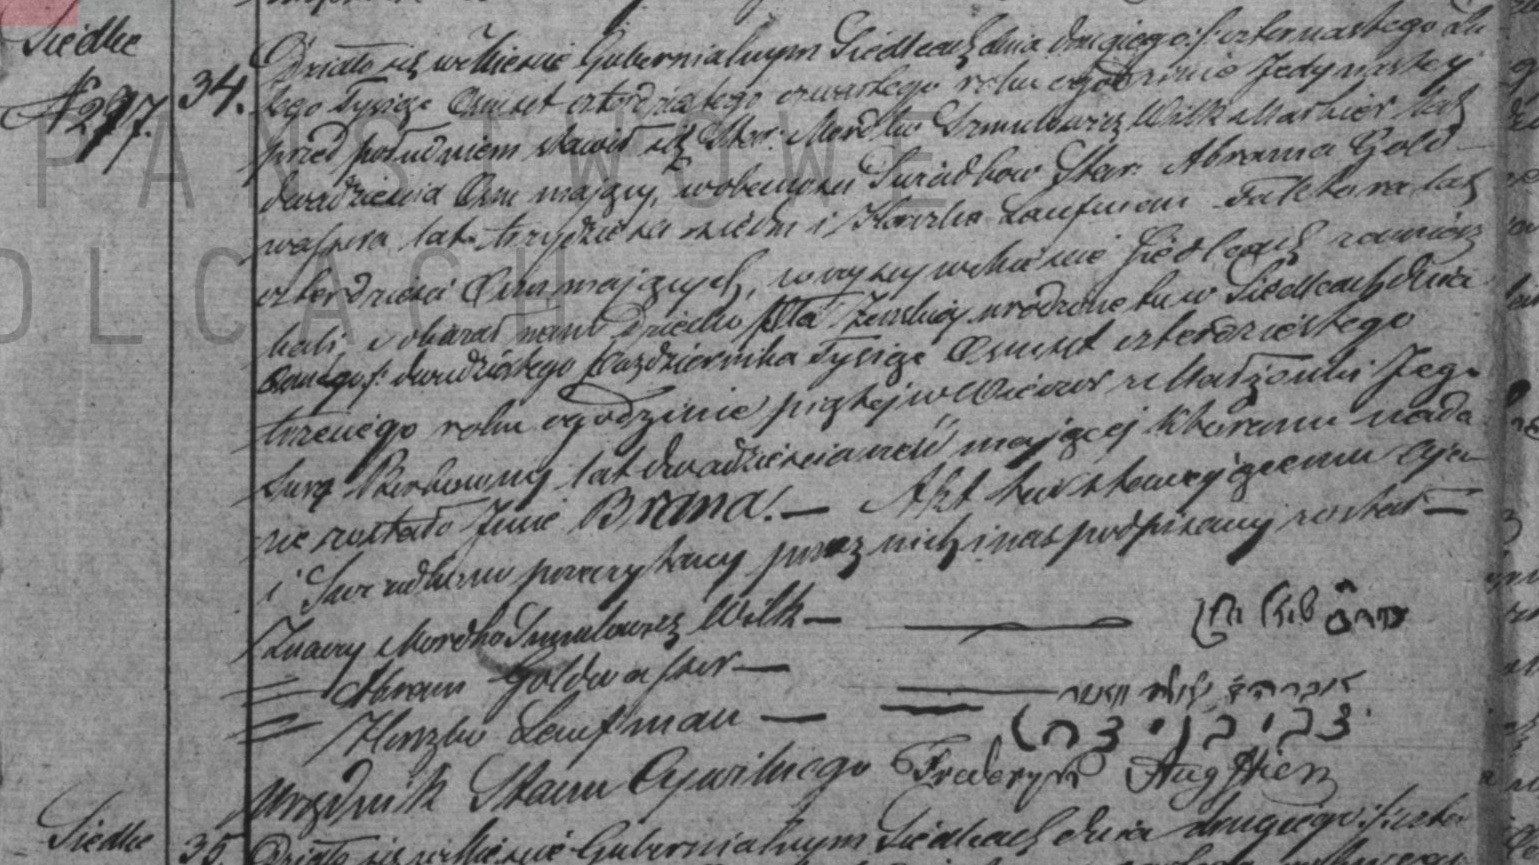 Siedlce
N 297.
34.
Działo się w Mieście Gubernialnym Siedlcach dnia drugiego /: czternastego Lu
tego Tysiąc Osmset czterdziestego czwartego roku o godzinie Jedynastey
przed południem stawił się Star: Mordko Szmulowicz Wilk Markier lat
dwadzieścia Osm mający, w obecności Świadków Star: Abrama Gold
wassera lat trzydzieści siedm i Herszka Laufman Faktora lat
czterdzieści Osm mających, w mieście Siedlcach zamiesz
kali i okazał nam Dziecko Płci Żeńskiej urodzone tu w Siedlcach dnia
dwudziestego Października Tysiąc Osmset czterdziestego
trzeciego roku o godzinie piątej w Wieczór z Małżonki Jego
Sury lat dwadzieścia sześć mającej któremu nada
ne zostało Imie Brana. — Akt ten stawającemu Ojcu
i Świadkom przeczytany przez nich i nas podpisany został —
Znaczy Mordko Szmulowicz Wilk —
= Abram Goldwasser —
= Herszko Laufman —
Urzędnik Stanu Cywilnego Fryderyk
Siedlce
35.
Działo się w Mieście Gubernialnym Siedlcach dnia drugiego /: czter
PAŃSTWOWE
OLCACH